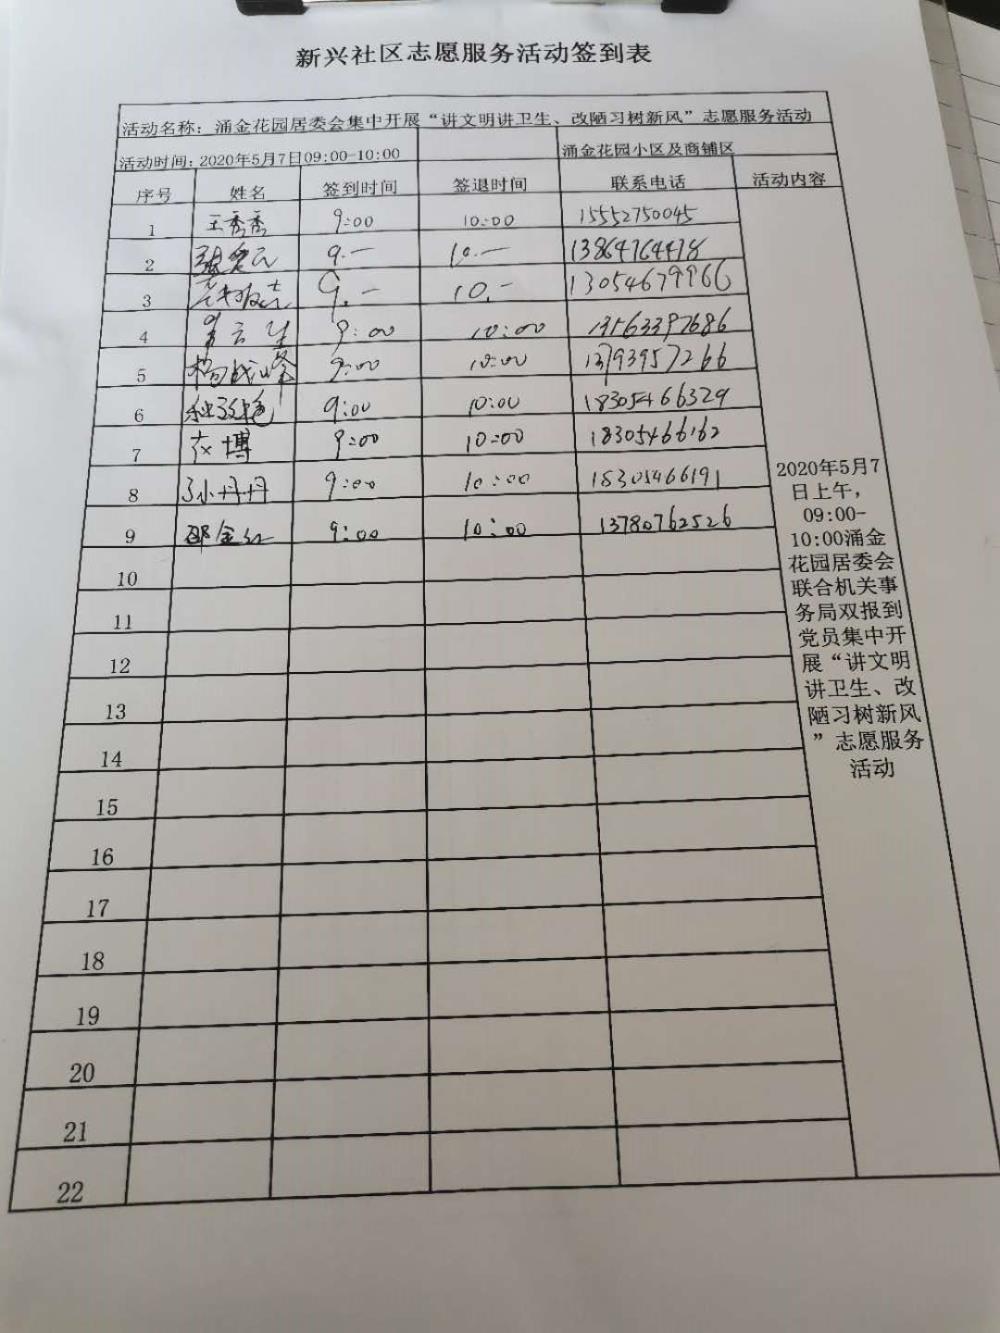 新兴社区志愿服务活动签到表
活动名称：涌金花园居委会集中开展“讲文明讲卫生、改陋习树新风”志愿服务活动
活动时间：2020年5月7日09:00-10:00 涌金花园小区及商铺区
序号 姓名 签到时间 签退时间 联系电话 活动内容
1 王秀秀 9:00 10:00 15552750045
2 9.— 10.— 13864764478
3 9.— 10.— 13054679966
4 9:00 10:00 13563397686
5 杨战峰 9:00 10:00 13793957266
6 9:00 10:00 18305466329
7 博 9:00 10:00 18305466162
8 孙丹丹 9:00 10:00 18305466191
9 邵金红 9:00 10:00 13780762526
10
11
12
13
14
15
16
17
18
19
20
21
22
2020年5月7
日上午，
09:00-
10:00涌金
花园居委会
联合机关事
务局双报到
党员集中开
展“讲文明
讲卫生、改
陋习树新风
”志愿服务
活动